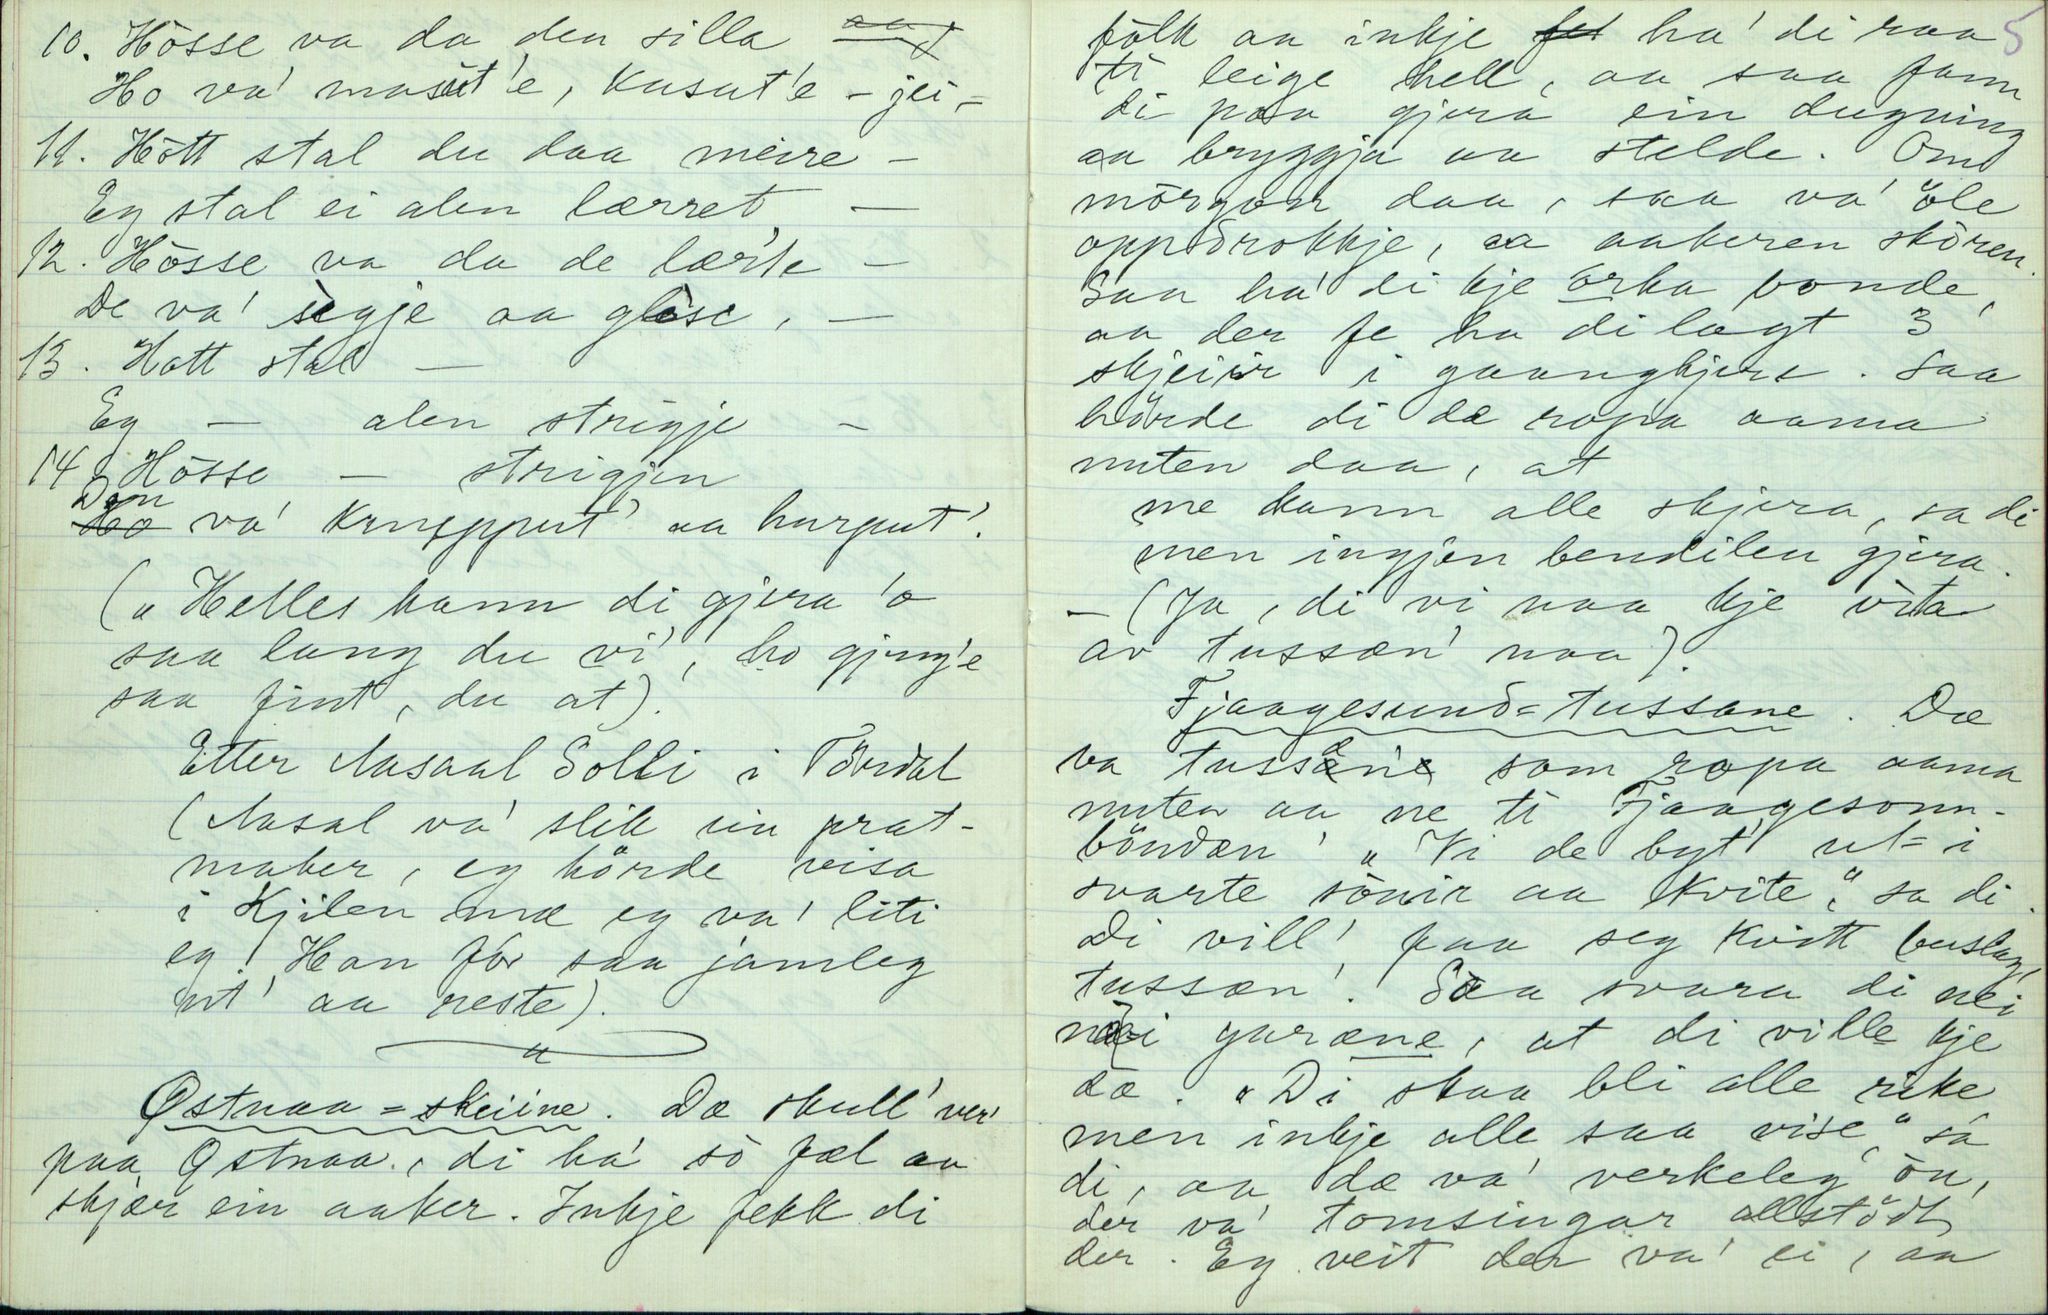 10. Hösse va da den silla
Ho va' masut'e, kusut'e - jei -
11. Hött stal du daa meire -
Eg stal ei alen lærret -
12. Hösse va da de lærte -
De va' sigje aa glise, -
13. Hött stal -
Eg - alen strigje -
14. Hösse - strigjen
Den va' knupput' aa hurput'.
(„Helles kann di gjera 'o
saa lang du vi', ho gjeng'e
saa fint, du at).
Etter Aasaal Solli i Tördal
(Aasal va' slik ein prat-
maker, eg hörde visa
i Kjilen mæ eg va' liti
eg. Han för saa jamleg
ut' aa reste).
Østnaa=skeiine. Dæ skull' ver'
paa Østnaa, di ha' so fæl aa
skjær ein aaker. Inkje fekk di
5
fölk aa inkje ha' di raa
ti leige hell, aa saa fann
di paa gjera ein dugning
aa bryggja aa stelde. Om
mörgon daa, saa va' öle
oppdrokkje, aa aakeren skören.
Saa ha' di kje orka vonde,
aa der fe ha di lagt 3
skjeiir i gaangkjere. Saa
hörde di dæ ropa aama
nuten daa, at
me kann alle skjera, sa di
men ingjen bendilen gjera.
- (Ja, di vi naa kje vita
av tussæn' naa).
Fjaagesund=tussane. Dæ
va tussane som ropa aama
nuten aa ne ti Fjaagesonn-
böndæn' „Vi de byt' ut= i
svarte sönir aa kvite," sa di.
Di vill' faa seg kvitt buslag,
tussæn'. Saa svara di nei
nei garæne, at di ville kje
dæ. „Di skaa bli alle rike
men inkje alle saa vise," sa
di, aa dæ va' verkeleg ön,
der va' tomsingar allstödt
der. Eg veit der va' ei, aa